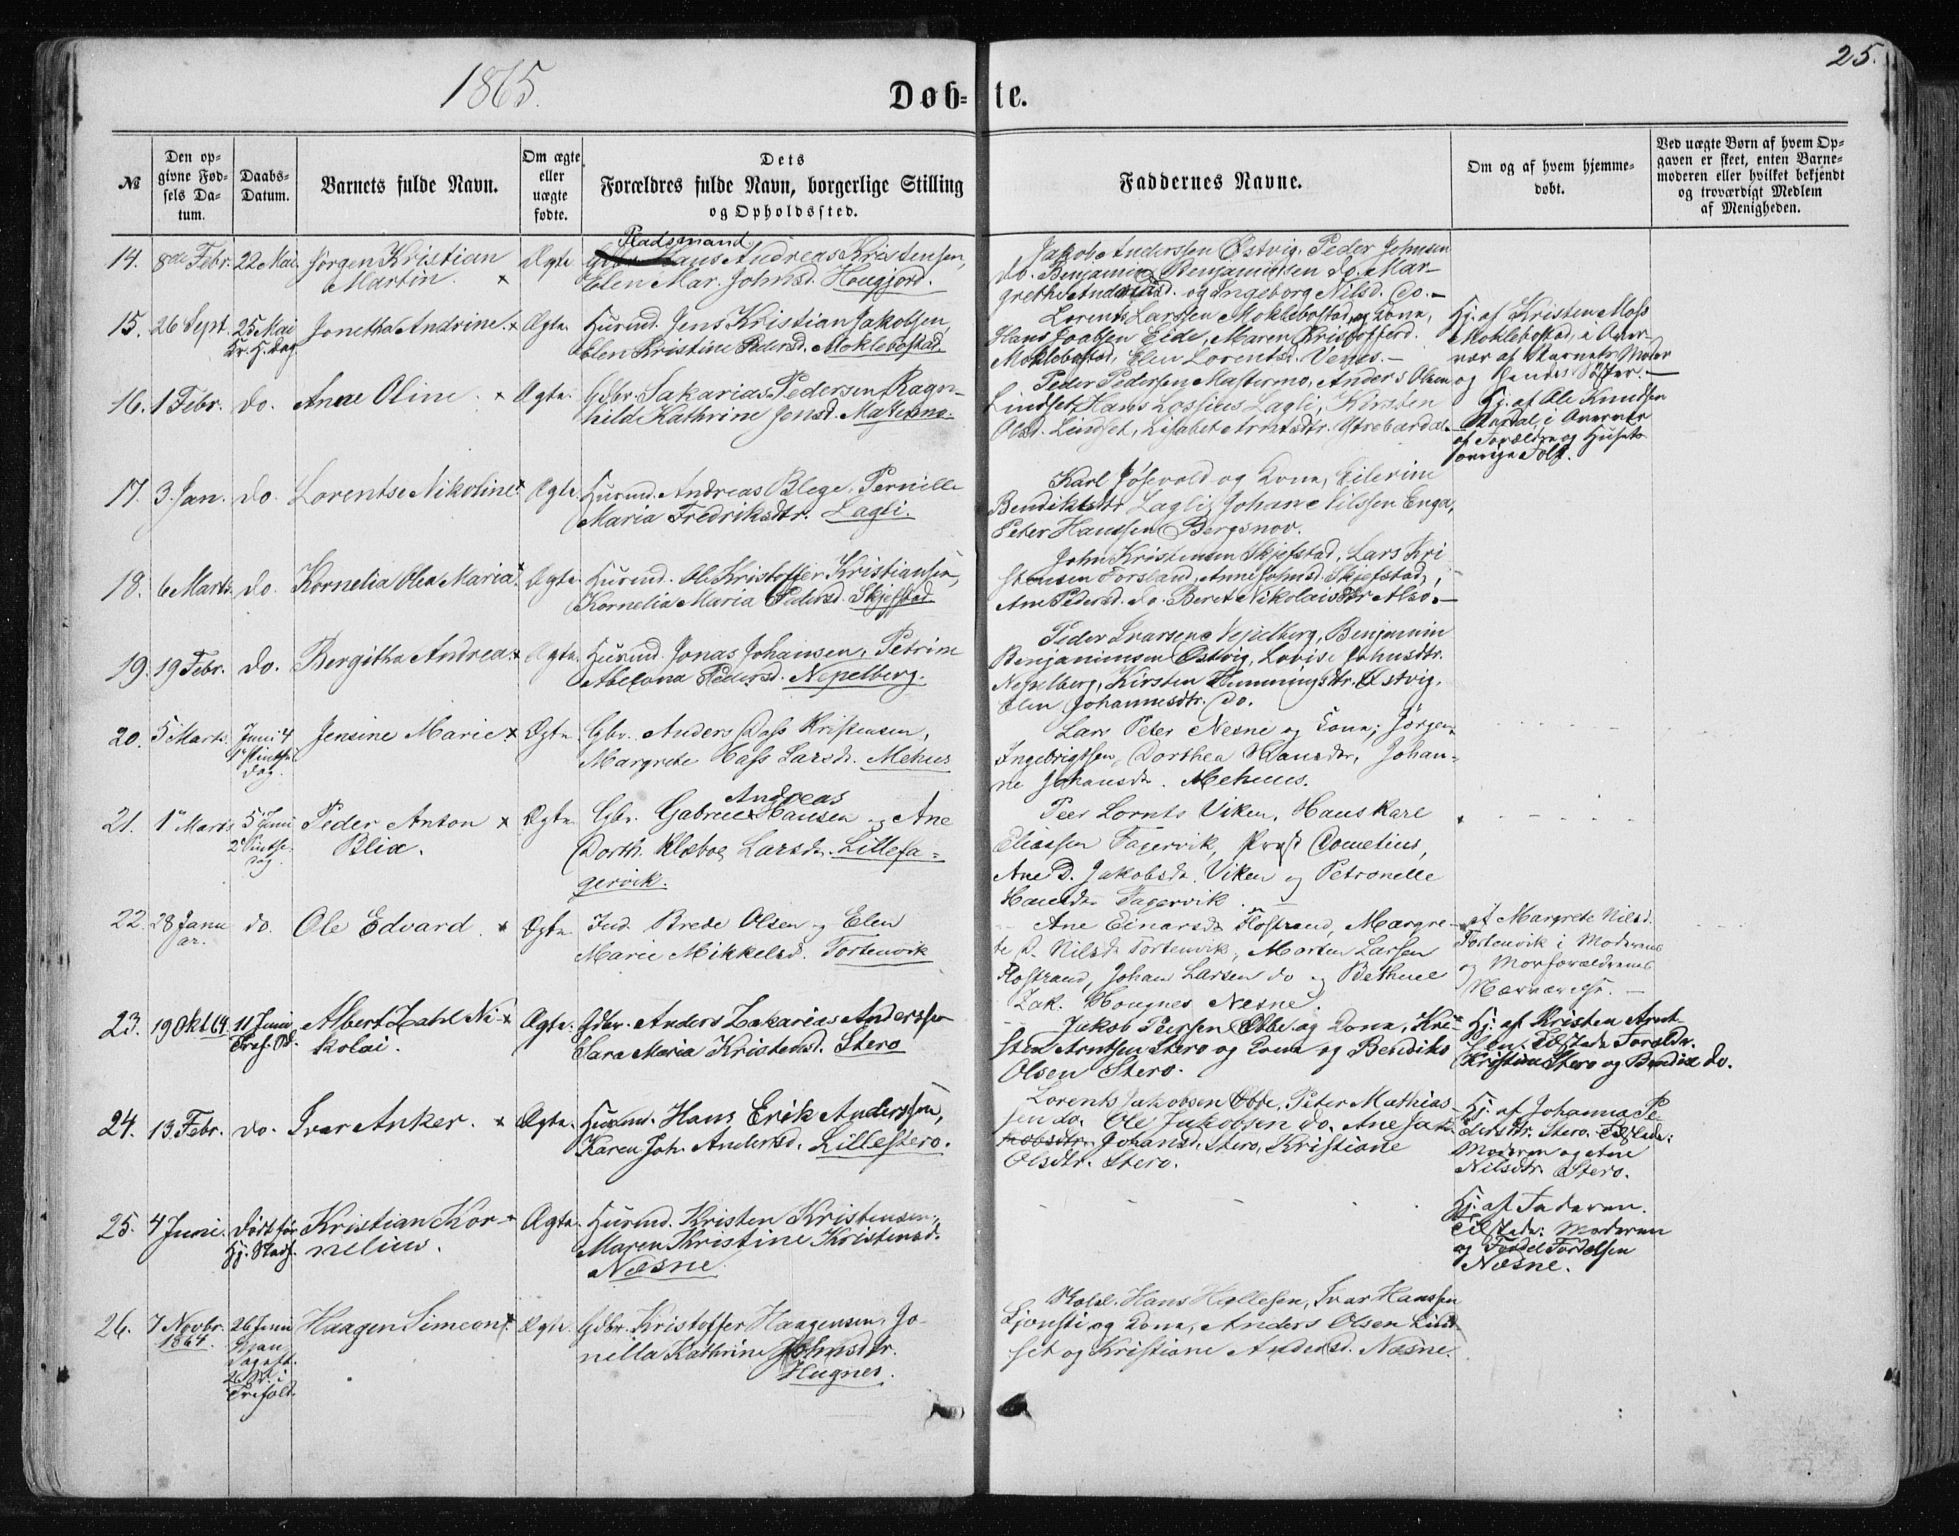 1865.
Døb-te.
25.
№
Den opgivne Fødsels Datum.
Daabs-Datum.
Barnets fulde Navn.
Om ægte eller uægte fødte.
Dets Forældres fulde Navn, borgerlige Stilling og Opholdssted.
Faddernes Navne.
Om og af hvem hjemmedøbt.
Ved uægte Børn af hvem Opgaven er skeet, enten Barnemoderen eller hvilket bekjendt og troværdigt Medlem af Menigheden.
14. 8de Febr. 22 Mai Jørgen Kristian Ægte Pladsmand Hans Andreas Kristensen,
Martin. × Elen Mar. Johnsd. Hougjord.
Jakob Anderssen Østvig, Peder Johnsen
do. Benjamin Benjaminsen do. Mar-
grethe Andersd. og Ingeborg Nilsd. do. –
15. 26 Sept. 25 Mai Jonetha Andrine × Ægte. Huusmd. Jens Kristian Jakobsen,
Kr. H. Dag Elen Kristine Pedersd. Moklebostad.
Lorents Larssen Moklebostad og Kona,
Hans Eide, Maren Kristofferd.
Moklebostad, Elen Lorentsd. Venes. –
Hj. af Kristen Moss
Moklebostad, i Over-
vær af Barnets Moder
og hendes Søster. –
16. 1 Febr. do. Anne Oline × Ægte. Gbr. Sakarias Pedersen, Ragn-
hilde Kathrine Jonsd. Mastermo.
Peder Pedersen Mastermo, Anders Olsen
Lindset, Hans Lossius Lagli, Kirsten
Olsd. Lindset, Lisabet Arntsdtr.
Hj. af Ole Knudsen
i Overvær
af Forældre og Husets
øvrige Folk.
17. 3. Jan. do. Lorentse Nikoline × Ægte. Huusmd. Andreas Blege, Pernille
Maria Fredriksdtr. Lagli.
Karl Jøsevold og Kona, Eilerine
Bendiktsdtr Lagli, Johan Nilssen Enga,
Peter Hanssen Bergsnov.
18. 6 Marts do. Kornelia Olea Maria × Ægte. Huusmd. Ole Kristoffer Kristiansen,
Kornelia Maria Pedersd. Skjefstad
John Kristensen Skjefstad, Lars Kri-
stensen Forsland, Anne Johnsd. Skjefstad,
Ane Pedersd. do. Beret Nikolaisdtr Alsø. –
19. 19 Febr. do. Bergitha Andrea × Ægte. Huusmd. Jonas Johansen, Petrine
Abelona Pedersd. Nepelberg.
Peder Larsen Nepelberg, Benjamin
Benjaminsen Østvig, Lovise Johnsdtr.
Nepelberg, Kirsten Hemmingsdtr. Østvig.
Elen Johannesdtr. do.
20. 5 Marts Juni 4 Jensine Marie × Ægte Gbr. Anders Dass Kristensen,
1ste Pintse-dag. Margrete Hass Larsd. Mehus
Lars Peter Nesne og Kona; Jørgen
Ingebrigtsen, Dorthea Hansdr, Johan-
ne Johansdr. Mehuus.
21. 1 Marts 5 Juni Peder Anton × Ægte Gbr. Gabriel Andreas Hansen og Ane
2 Pintse-dag. Blix. Dorth. Klæboe Larsdr. Lillefa-
gervik.
Peer Lornts Viken, Hans Karl
Eliassen Fagervik, Prost Cometius,
Ane D. Jakobsdr. Viken og Petronelle
Hansdr Fagervik.
22. 28 Janu- do. Ole Edvard. × Ægte Ind. Brede Olsen og Elen
ar. Marie Mikkelsd. Tortenvik
Ane Einarsdr Flostrand, Margre-
te D. Nilsdr Tortenvik, Morten Larsen
Flostrand, Johan Larsen do og Bethine
Zak. Hougnes Nesne.
af Margrete Nilsd.
Tortenvik i Moderens
og Morforældrenes
Nærværelse. –
23. 19 Okt. 64. 11 Juni Albert Zahl Ni- × Ægte. Gdbr. Anders Zakarias Anderssen
Tref. Sd. kolai. Sara Maria Kristensd. Stero
Jakob Peersen Ebbe og Kona, Kri-
sten Arntsen Stero og Kona og Bendiks
Olsen Stero.
Hj. af Kristen Arnt-
sen. Tilstede Foreldr.
Kristian Stero og Bendix do.
24. 13 Febr. do. Ivar Anker. × Ægte. Huusmd. Hans Erik Anderssen,
Karen Joh. Andersd. Lillestero.
Lorents Jakobsen Ebbe, Peter Mathias-
sen do. Ole Jakobsen do. Ane Jak-
kobsdtr. Johansd. Stero, Kristiane
Olsdtr. Stero.
Hj. af Johanna Pe-
dersdtr. Stero. Tilstede:
Moderen og Ane
Nilsdtr. Stero.
25. 4 Juni. Død før Kristian Kor- × Ægte. Huusmd. Kristen Kristensen,
Hj. Stadf. nelius. Maren Kristine Kristensd.
Næsne.
Hj. af Faderen.
Tilstede: Moderen
og Tordel Tordelsen
Næsne.
26. 7 Novbr. 26 Juni Haagen Simeon × Ægte. Gdbr. Kristoffer Haagensen, Jo-
1864. nilla Kathrine Johnsdtr.
Man-
dag eft.
2 Sd. i
Trefold.
Hugnes.
Hans Hallesen, Ivar Hanssen
Ljonsti og Kona, Anders Olsen Lind-
set og Kristiane Andersd. Næsne.